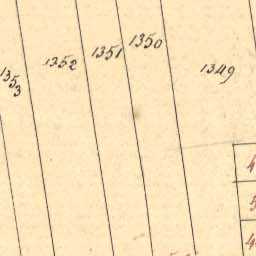 1353
1352
1351
1350
1349
4